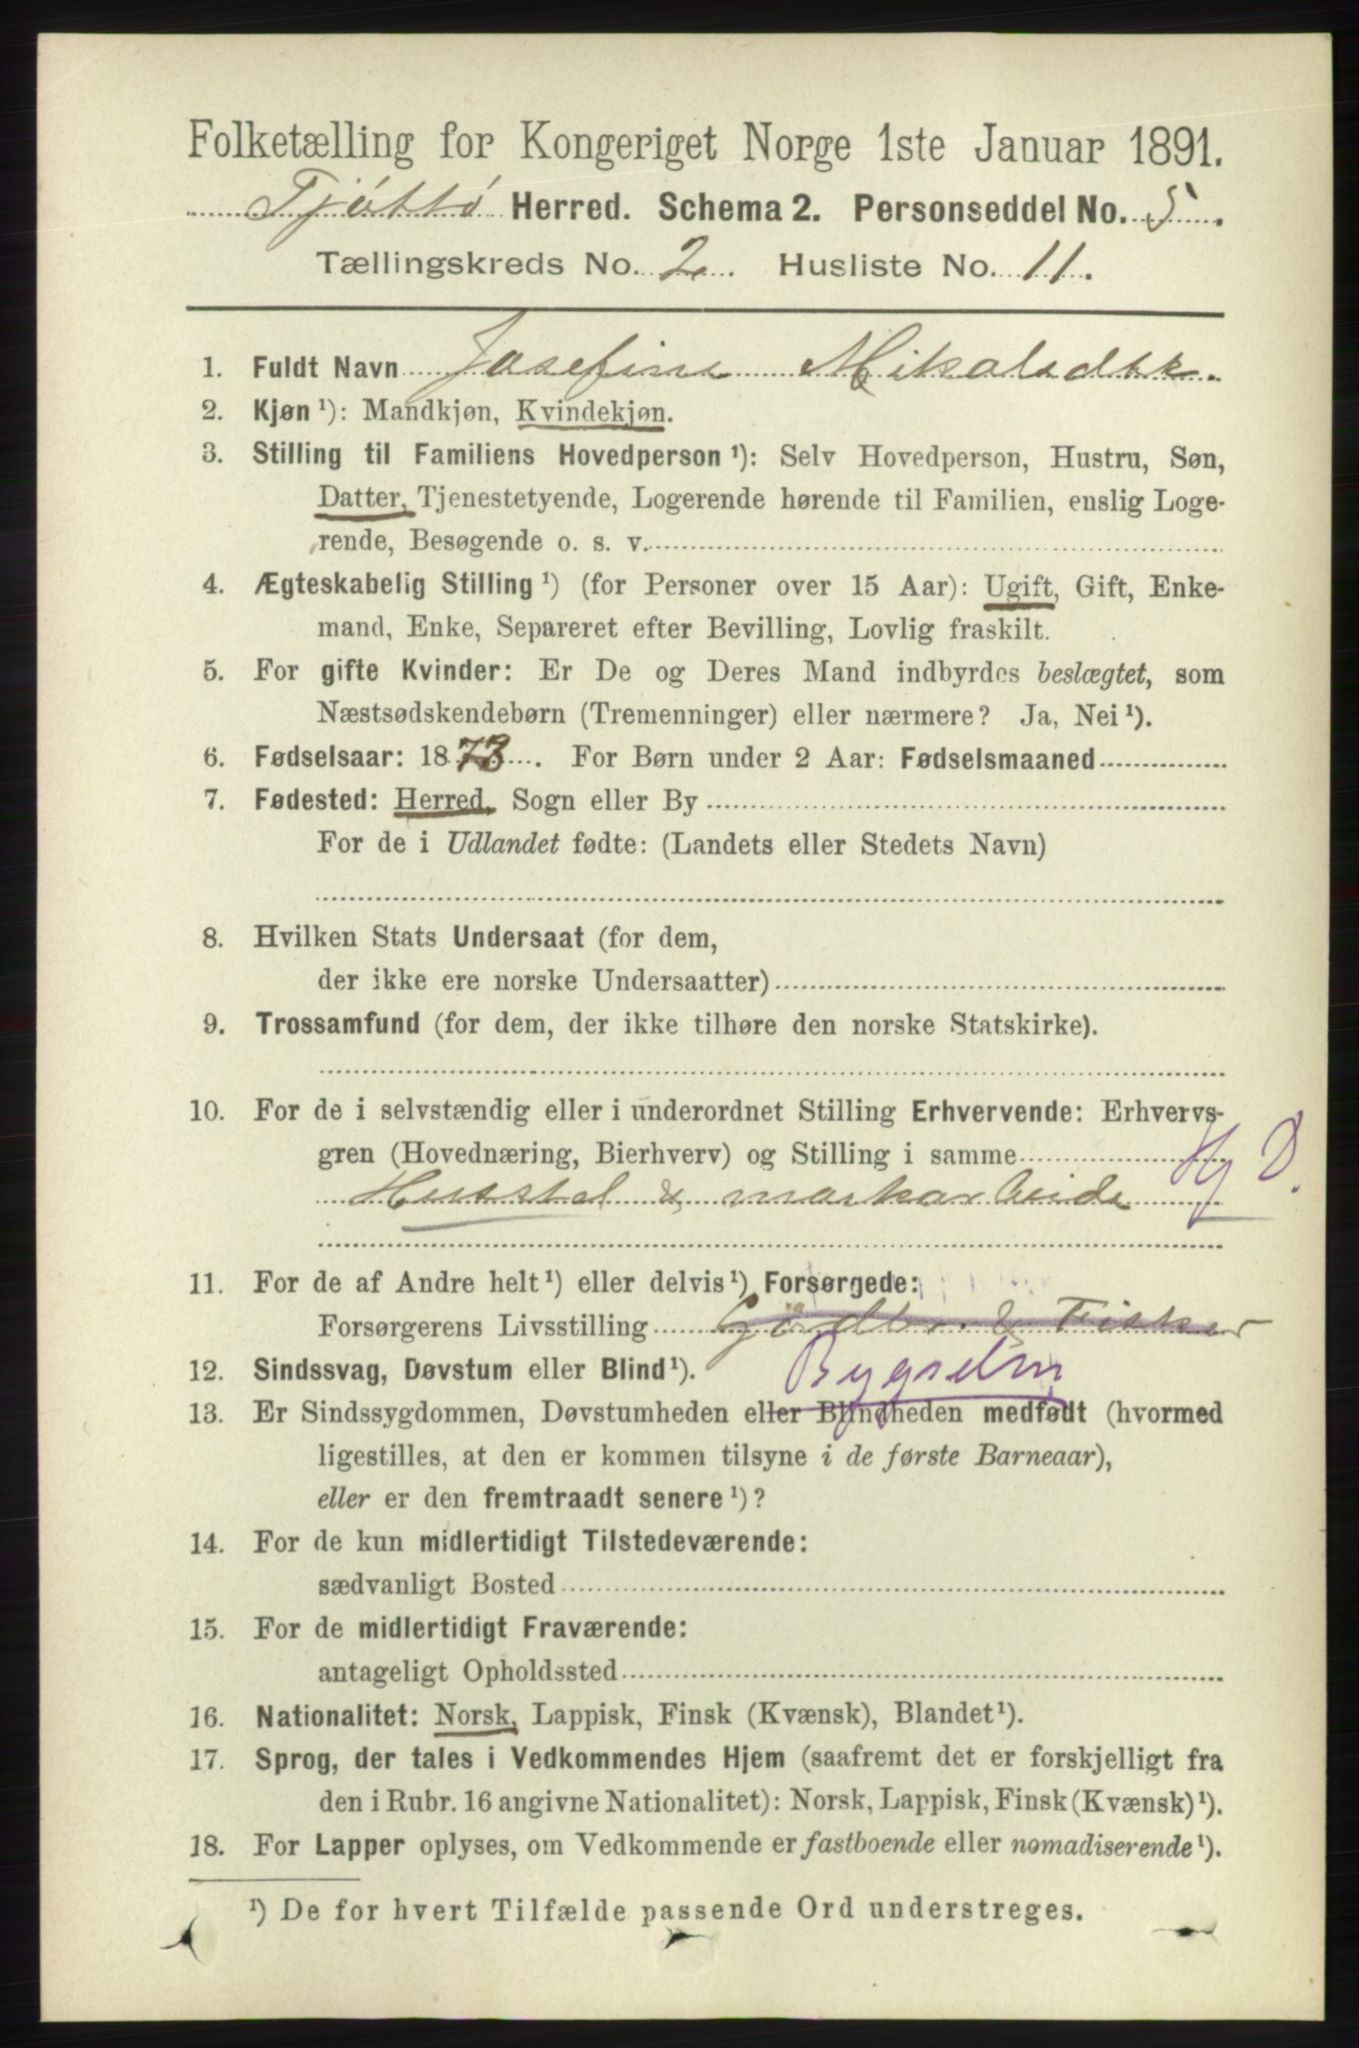 Folketælling for Kongeriget Norge 1ste Januar 1891.
Tjóttó Herred. Schema 2. Personseddel No. 5.
Tællingskreds No. 2. Husliste No. 11.
1. Fuldt Navn Josefine Mikalsdtr.
2. Kjøn ¹): Mandkjøn, Kvindekjøn.
3. Stilling til Familiens Hovedperson ¹): Selv Hovedperson, Hustru, Søn,
Datter, Tjenestetyende, Logerende hørende til Familien, enslig Loge-
rende, Besøgende o. s. v.
4. Ægteskabelig Stilling ¹) (for Personer over 15 Aar): Ugift, Gift, Enke-
mand, Enke, Separeret efter Bevilling, Lovlig fraskilt.
5. For gifte Kvinder: Er De og Deres Mand indbyrdes beslægtet, som
Næstsødskendebørn (Tremenninger) eller nærmere? Ja, Nei ¹).
6. Fødselsaar: 1873. For Børn under 2 Aar: Fødselsmaaned
7. Fødested: Herred, Sogn eller By
For de i Udlandet fødte: (Landets eller Stedets Navn)
8. Hvilken Stats Undersaat (for dem,
der ikke ere norske Undersaatter)
9. Trossamfund (for dem, der ikke tilhøre den norske Statskirke).
10. For de i selvstændig eller i underordnet Stilling Erhvervende: Erhvervs-
gren (Hovednæring, Bierhverv) og Stilling i samme Hg D.
Husstel & markarbeide
11. For de af Andre helt ¹) eller delvis ¹) Forsørgede:
Forsørgerens Livsstilling Gårdbr. & Fisker
12. Sindssvag, Døvstum eller Blind ¹). Bygselm
13. Er Sindssygdommen, Døvstumheden eller Blindheden medfødt (hvormed
ligestilles, at den er kommen tilsyne i de første Barneaar),
eller er den fremtraadt senere ¹)?
14. For de kun midlertidigt Tilstedeværende:
sædvanligt Bosted
15. For de midlertidigt Fraværende:
antageligt Opholdssted
16. Nationalitet: Norsk, Lappisk, Finsk (Kvænsk), Blandet ¹).
17. Sprog, der tales i Vedkommendes Hjem (saafremt det er forskjelligt fra
den i Rubr. 16 angivne Nationalitet): Norsk, Lappisk, Finsk (Kvænsk) ¹).
18. For Lapper oplyses, om Vedkommende er fastboende eller nomadiserende ¹).
¹) De for hvert Tilfælde passende Ord understreges.